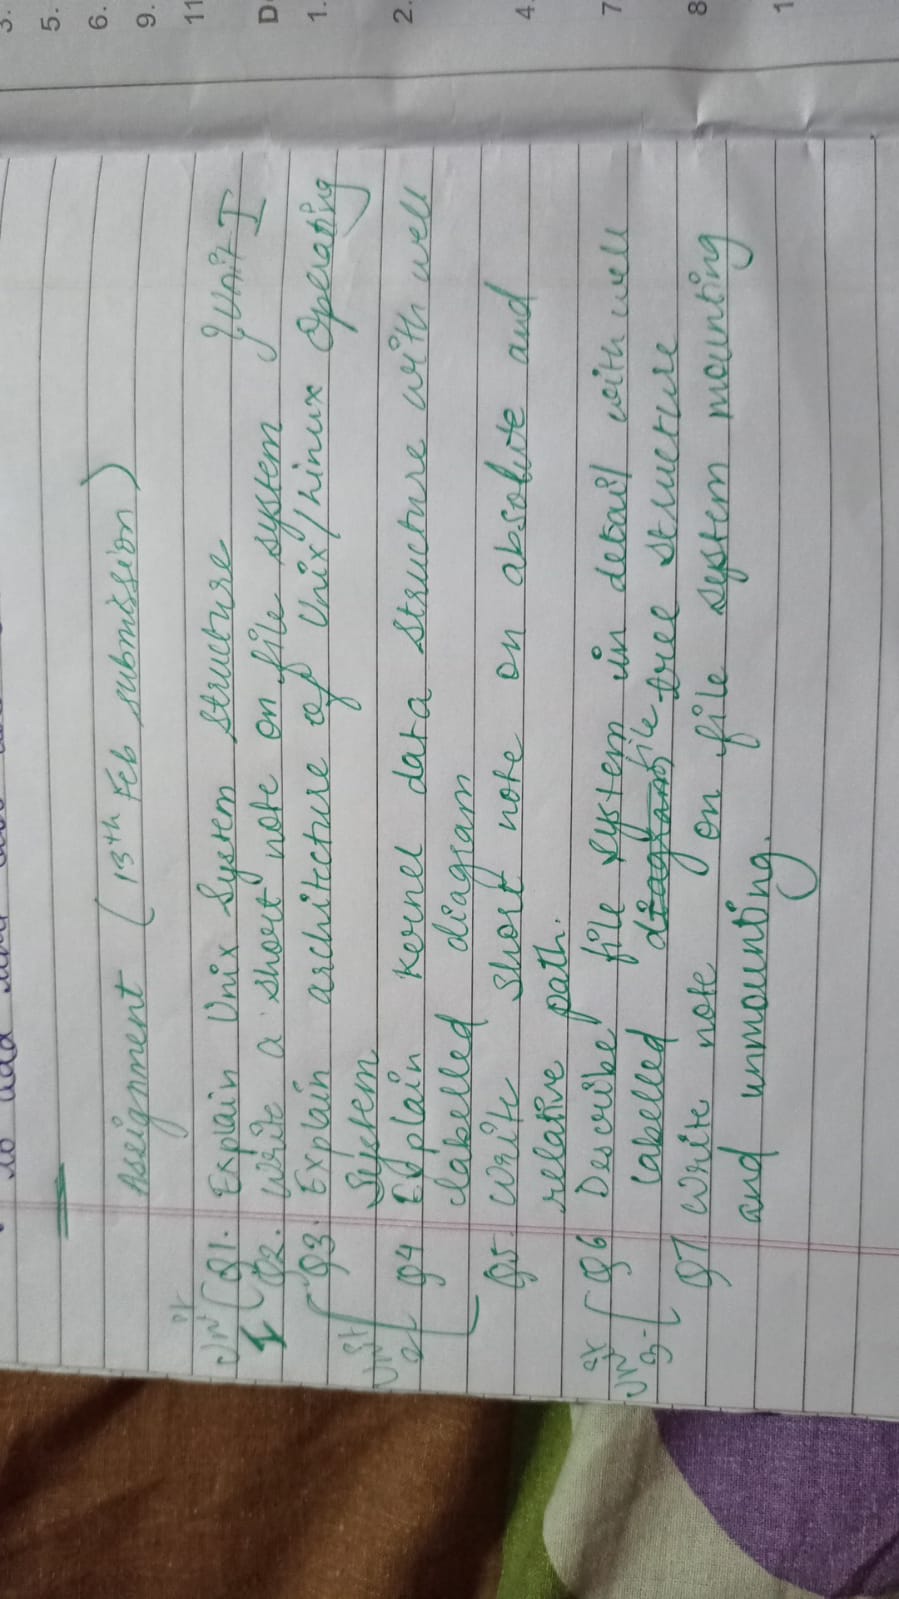 to add
Assignment (13th Feb submission)
Unit I
Q1. Explain Unix System Structure } Unit I
Q2. Write a short note on file system
Unit 2
Q3. Explain architecture of Unix/Linux Operating
System
Q4 Explain Kernel data Structure with well
labelled diagram
Q5 Write short note on absolute and
relative path.
Unit 3
Q6 Describe file system in detail with well
labelled diagram file tree structure
Q7 Write note on file system mounting
and unmounting.
3.
5.
6.
9.
11
D
1.
2.
4.
7
8
1